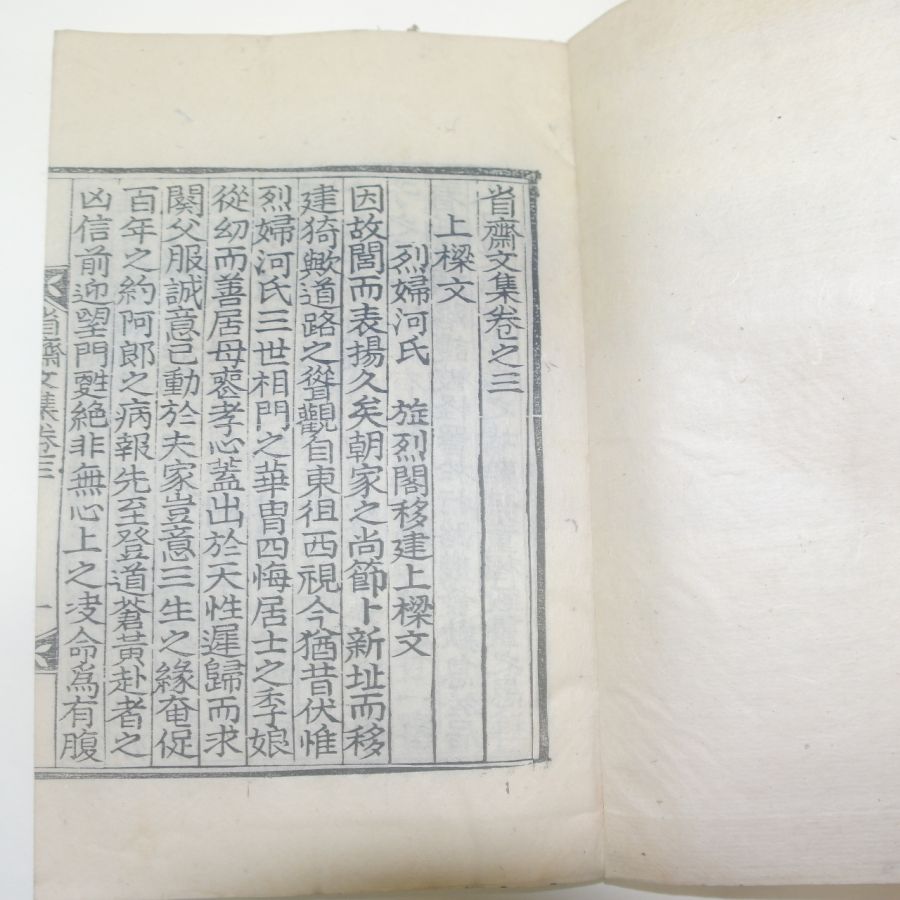 省齋文集卷之三
上樑文
烈婦河氏 旌烈閣移建上樑文
因故閭而表揚久矣朝家之尚節卜新址而移
建猗歟道路之聳觀自東徂西視今猶昔伏惟
烈婦河氏三世相門之華胄四悔居士之季娘
從幼而善居母喪孝心蓋出於天性遲歸而求
闋父服誠意已動於夫家豈意三生之緣奄促
百年之約阿郎之病報先至登道蒼黃赴者之
凶信前迎望門絶非無心上之命爲有腹
省齋文集卷三
一